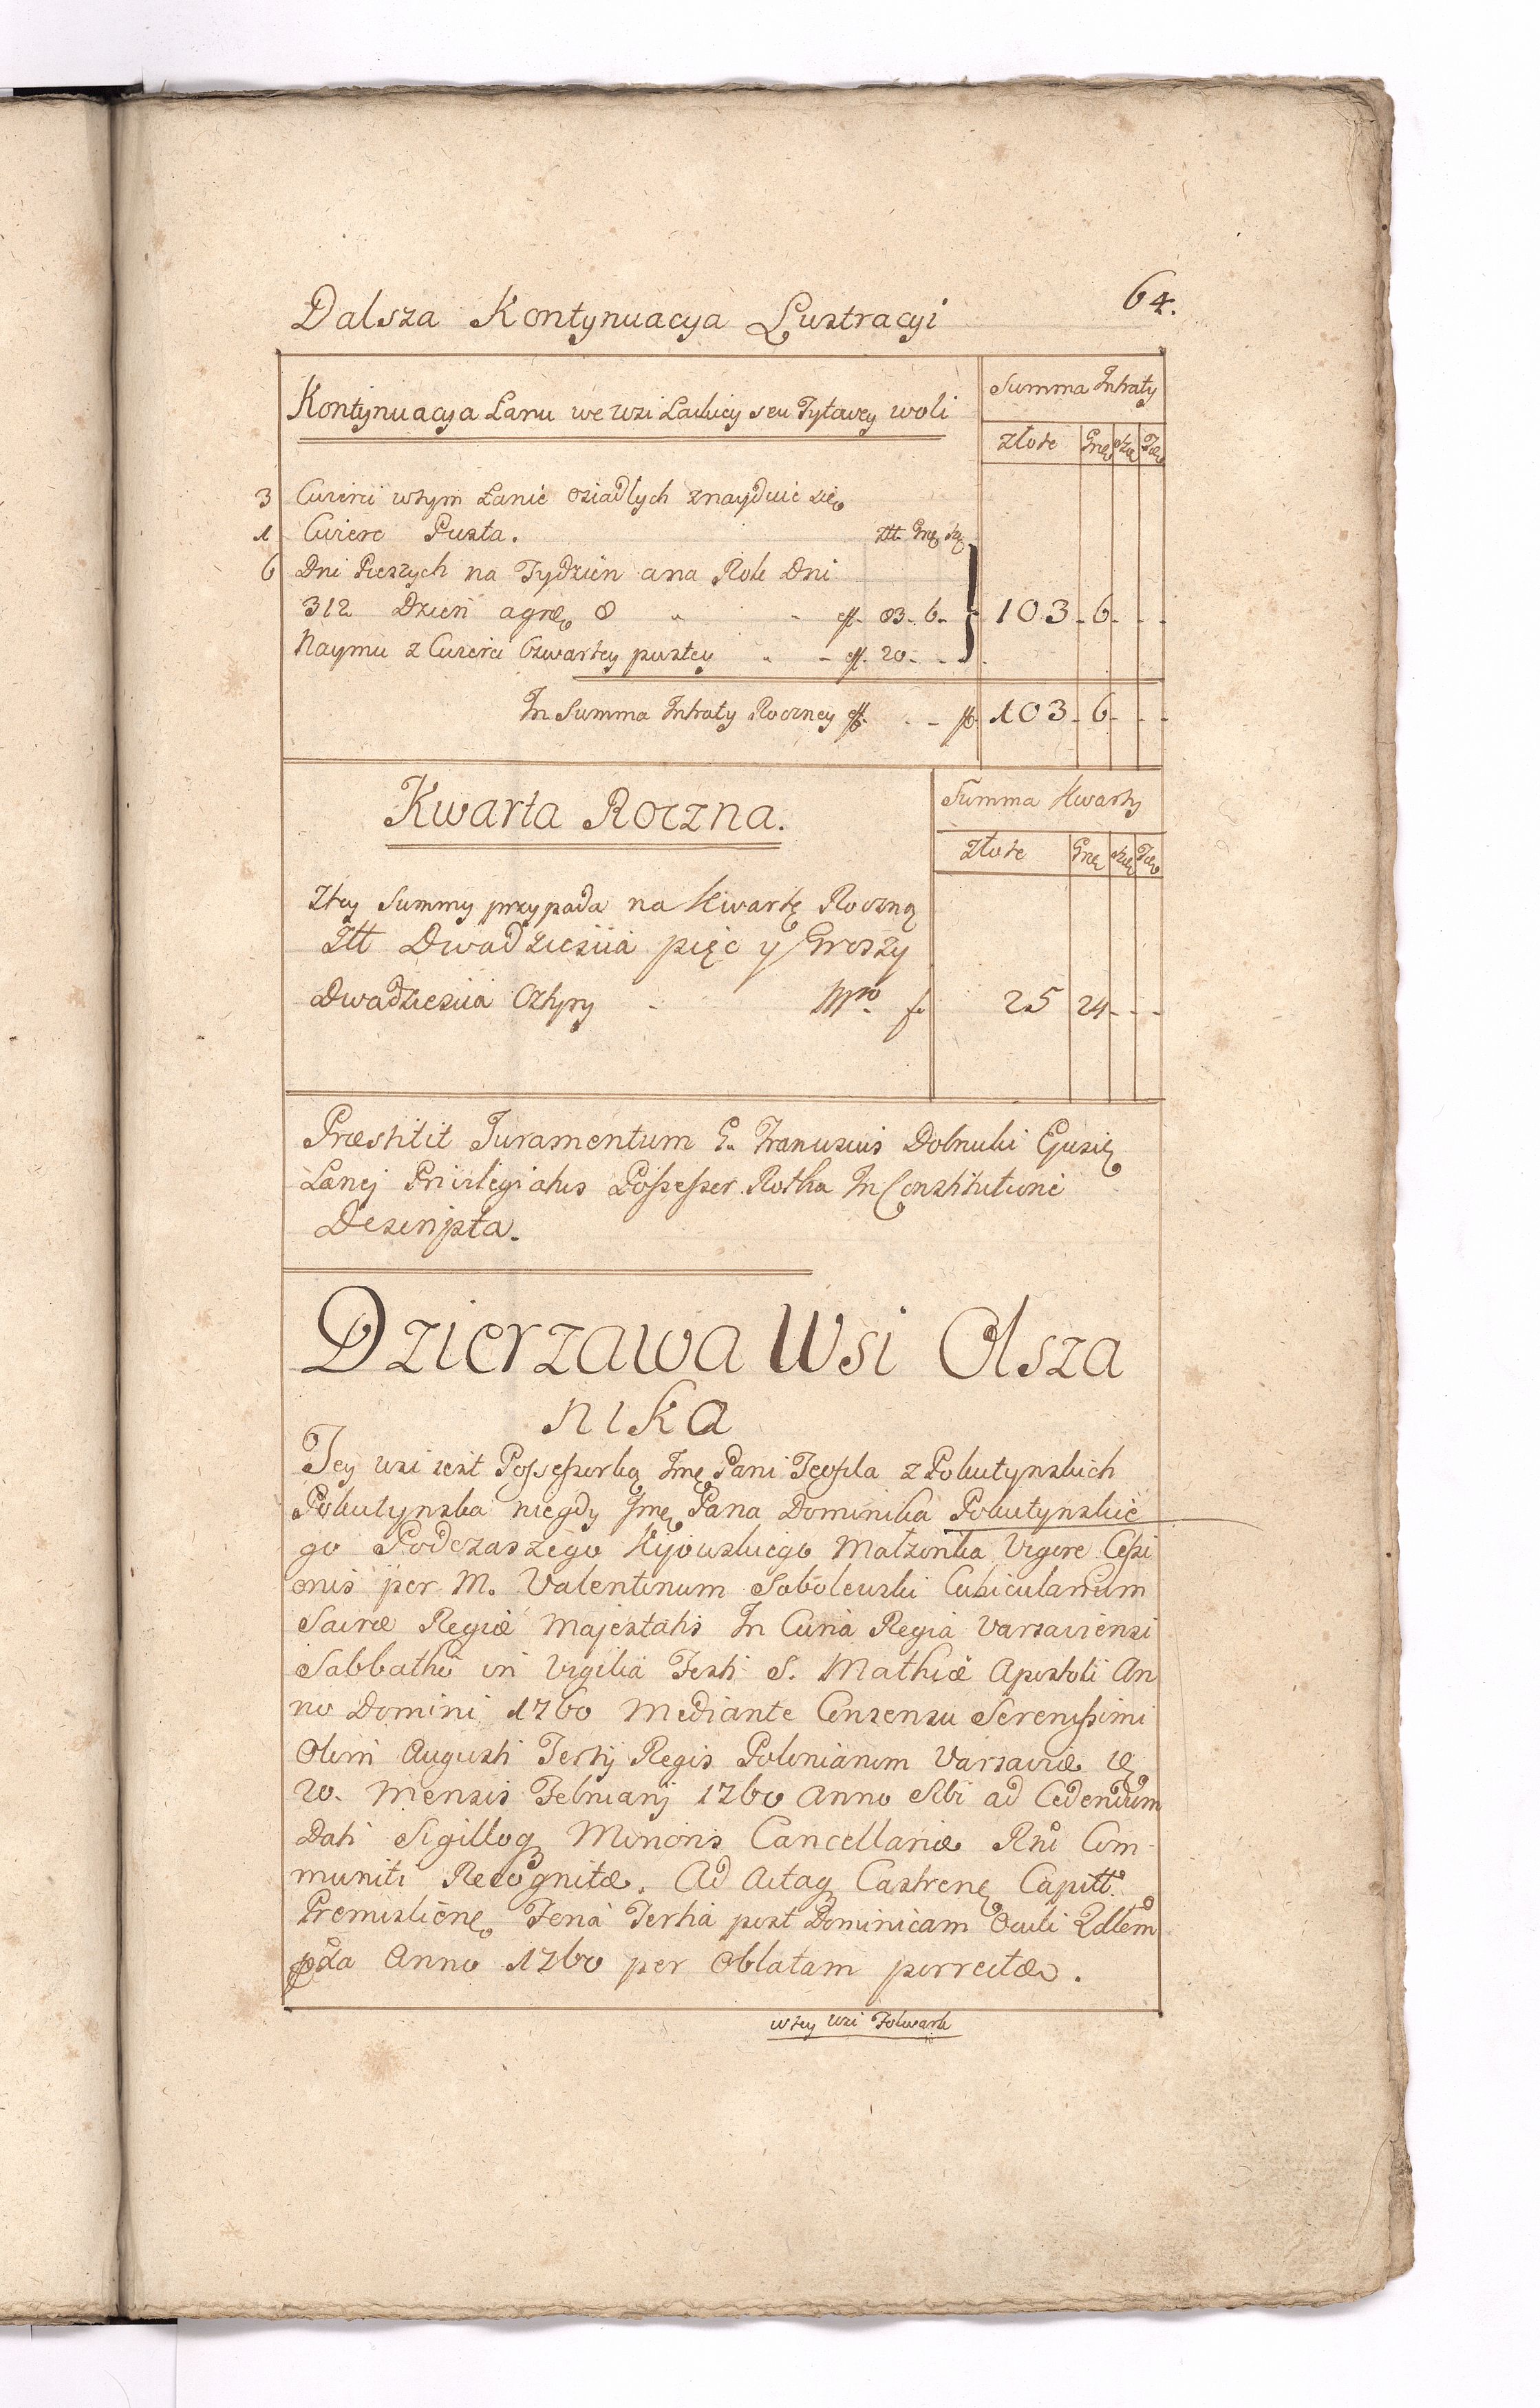 64.
Dalsza Kontynuacya Lustracyi
Kontynuacya Łanu we wsi Lackiey seu Tytawey woli
Summa Intraty
Złote Grię Szę
3 Cwierci wtym Łanie osiadlych znayduie się
1 Cwierc Pusta. Złł Grę Szę
6 Dni Pieszych na Tydzien ana Rok Dni
312 Dzień agrię 8 - ff. 83. 6. 103. 6. - -
Naymu z Cwierci Czwartey pustey - ff. 20. - -
In Summa Intraty Roczney ff. - 103. 6. - -
Kwarta Roczna.
Summa Kwarty
Złote Grę Szę
Ztey Summy przypada na Kwartę Roczną
Złł Dwadziescia pięc y Groszy
Dwadziescia Cztyry - 25 24 - - -
Præstitit Juramentum G. Franciscus Dolnicki Ejusdę
Lanej Privilegiatus Possessor Rotha In Constitutione
Descripta.
Dzierzawa Wsi Olsza
nika
Tey wsi iest Possessorką Jmę Pani Teofila z Pokutynskich
Pokutynska niegdy Jmę Pana Dominika Pokutynskie
go Podczaszego Kijowskiego Małzonka Vigore Cessi
onis per M. Valentinum Sobolewski Cubicularium
Sacræ Regiæ Majestatis In Curia Regia Varsaviensi
Sabbatho in Vigilia Festi S. Mathiæ Apostoli An
no Domini 1760 Mediante Consensu Serenissimi
Olim Augusti Tertij Regis Poloniarum Varsaviæ
20. Mensis Februarij 1760 Anno Sibi ad Cedendum
Dati Sigilloq Minoris Cancellariæ Rni Com
muniti Recognitæ. Ad Actaq Castrenę Capitt.
Premislienę Feria Tertia post Dominicam Oculi Qdlem
pda Anno 1760 per Oblatam porrectæ.
wtey wsi Folwark